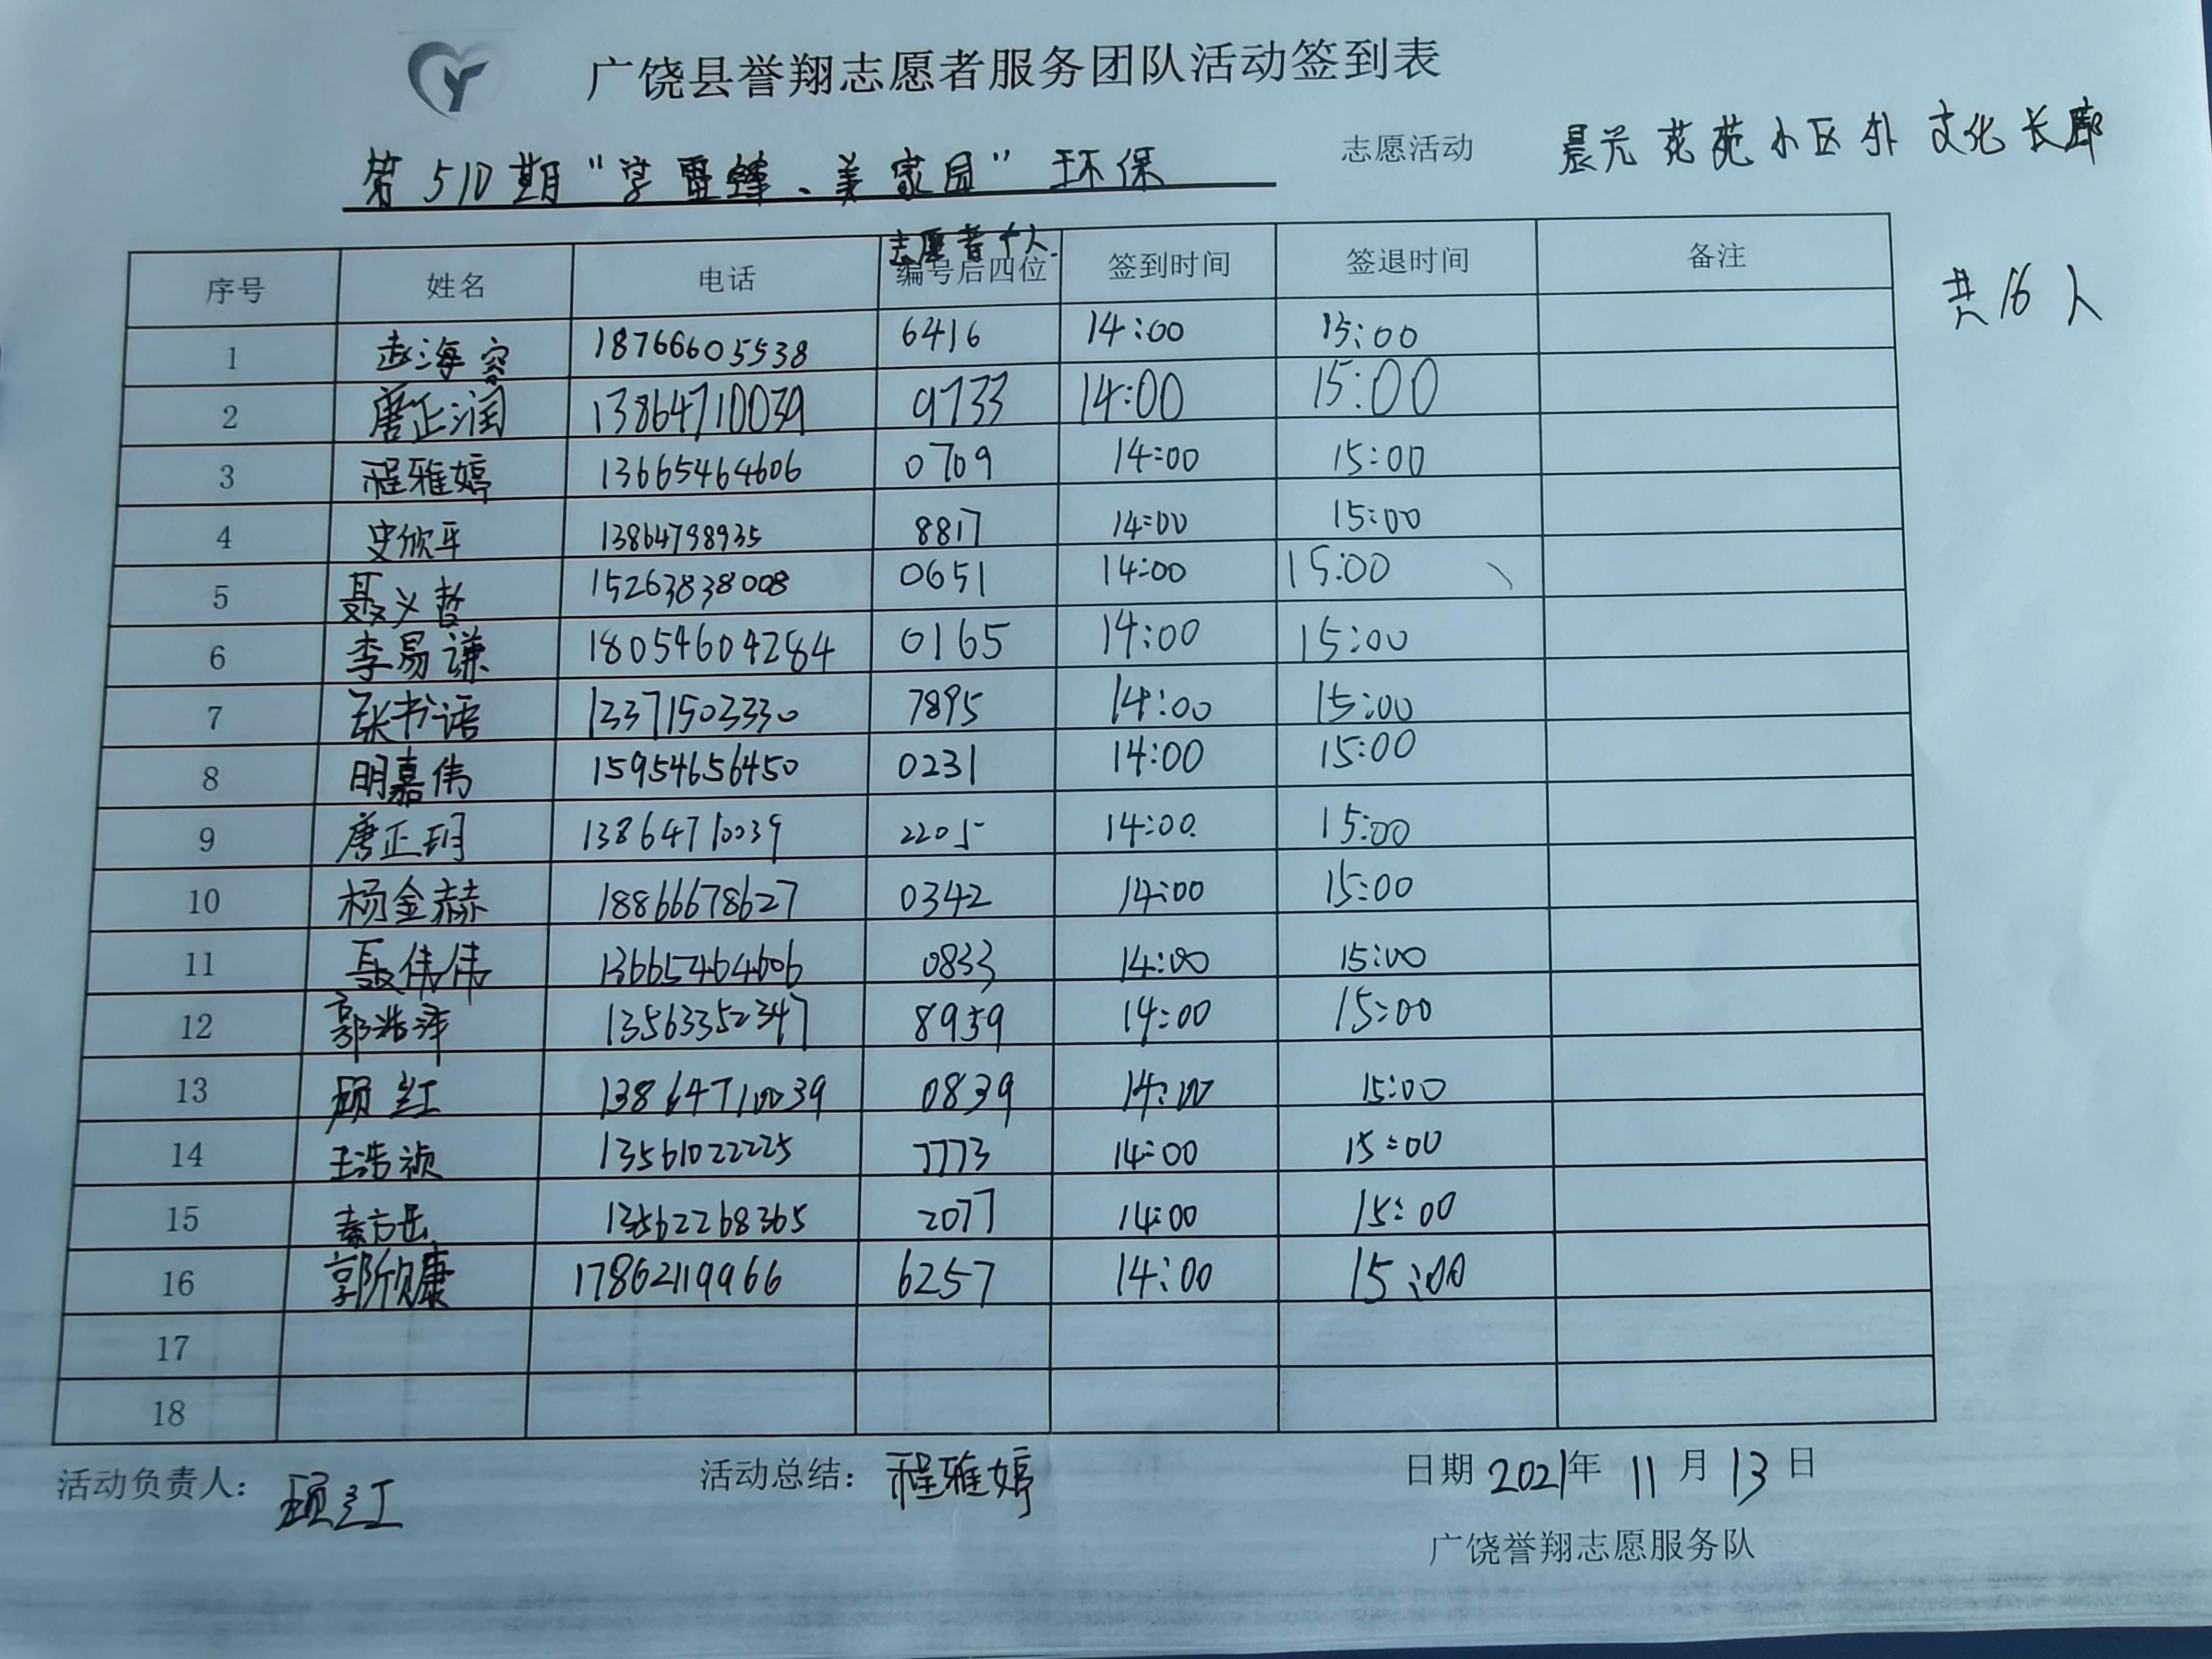 广饶县誉翔志愿者服务团队活动签到表
第510期“学雷锋、美家园”环保 志愿活动 晨光花苑小区外文化长廊
共16人
序号 姓名 电话 志愿者个人编号后四位 签到时间 签退时间 备注
1 赵海容 18766605538 6416 14:00 15:00
2 唐正润 13864710039 9733 14:00 15:00
3 程雅婷 13665464606 0709 14:00 15:00
4 史欣平 13864798935 8817 14:00 15:00
5 聂义哲 15263838008 0651 14:00 15:00
6 李易谦 18054604284 0165 14:00 15:00
7 张书语 13371503330 7895 14:00 15:00
8 明嘉伟 15954656450 0231 14:00 15:00
9 唐正玥 13864710039 2205 14:00 15:00
10 杨金赫 18866678627 0342 14:00 15:00
11 聂伟伟 13665464606 0833 14:00 15:00
12 郭浩泽 13563352347 8959 14:00 15:00
13 顾红 13864710039 0839 14:00 15:00
14 王浩祯 13561022225 7773 14:00 15:00
15 方岳 13562268365 2077 14:00 15:00
16 郭欣康 17862119966 6257 14:00 15:00
17
18
活动负责人: 顾红 活动总结: 程雅婷 日期 2021年 11月 13日
广饶誉翔志愿服务队